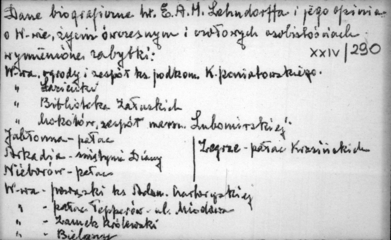 Dane biograficzne hr. E.A.M. Lehndorffa i jego opinia
o W-wie, życiu ówczesnym i czołowych osobistościach
wymienione zabytki:
XXIV/290
W-wa, ogrody i zespół ks. podkom. K. Poniatowskiego.
" Łazienki
" Biblioteka Załuskich
" Mokotów, zespół marsz. Lubomirskiej"
Jabłonna - pałac
Zegrze - pałac Krasińskich
Arkadja - świątynia Diany
Nieborów - pałac
W-wa - Powązki ks. Adam. Czartoryskiej
" - pałac Tepperów - ul. Miodowa
" - Zamek Królewski
" - Bielany